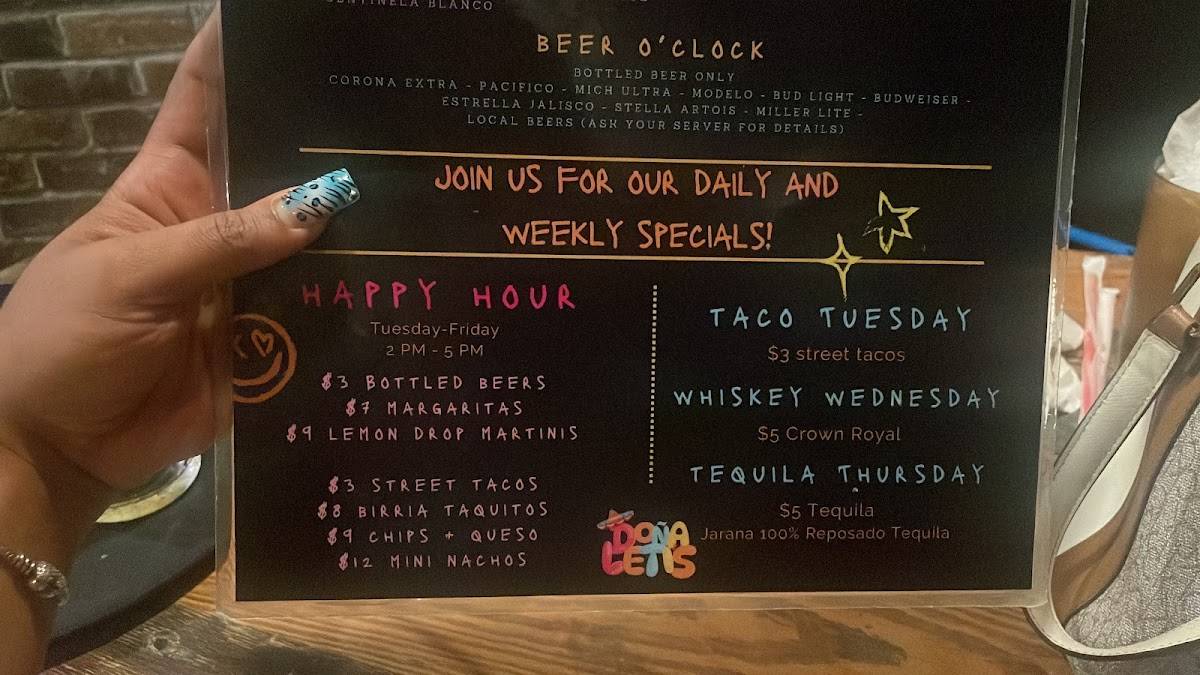 SENTINELA BLANCO
BEER O'CLOCK
BOTTLED BEER ONLY
CORONA EXTRA - PACIFICO - MICH ULTRA - MODELO - BUD LIGHT - BUDWEISER -
ESTRELLA JALISCO - STELLA ARTOIS - MILLER LITE -
LOCAL BEERS (ASK YOUR SERVER FOR DETAILS)
JOIN US FOR OUR DAILY AND
WEEKLY SPECIALS!
HAPPY HOUR
Tuesday-Friday
2 PM - 5 PM
$3 BOTTLED BEERS
$7 MARGARITAS
$9 LEMON DROP MARTINIS
$3 STREET TACOS
$8 BIRRIA TAQUITOS
$9 CHIPS + QUESO
$12 MINI NACHOS
TACO TUESDAY
$3 street tacos
WHISKEY WEDNESDAY
$5 Crown Royal
TEQUILA THURSDAY
$5 Tequila
Jarana 100% Reposado Tequila
DOÑA
LETIS